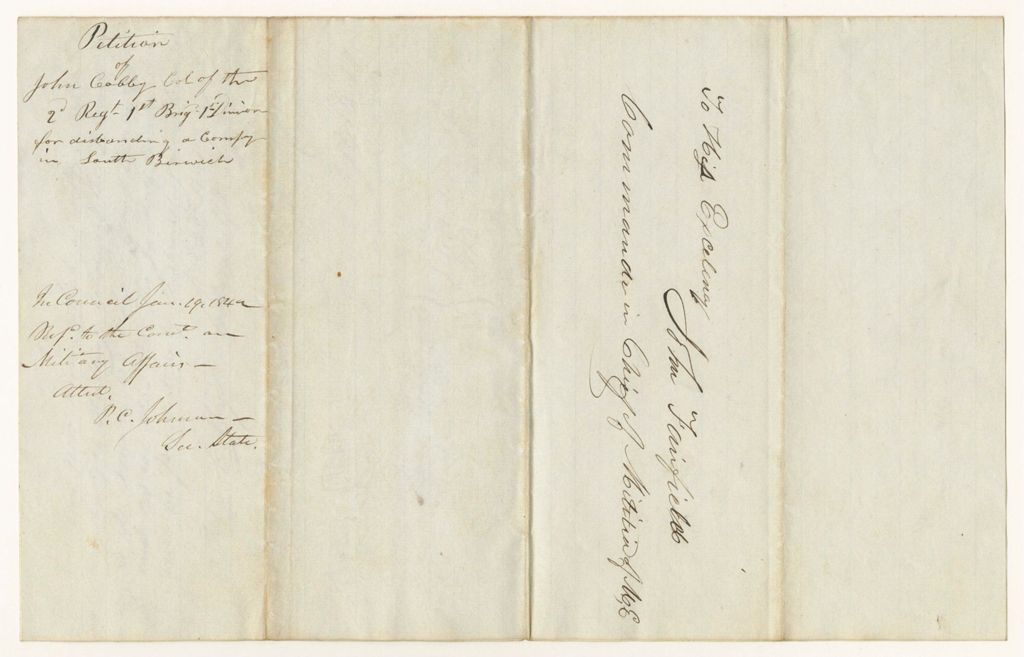 Petition
of
John Cobby Col of the
2d Regt 1st Brig 1st Division
for disbanding a Compy
in South Berwick
In Council Jan. 19. 184
Refd. to the Comt. on
Military Affairs —
Attest,
P. C. Johnson —
Sec. State.
To His Excelency
John Fairfield
Commander in Chief of Militia of ME